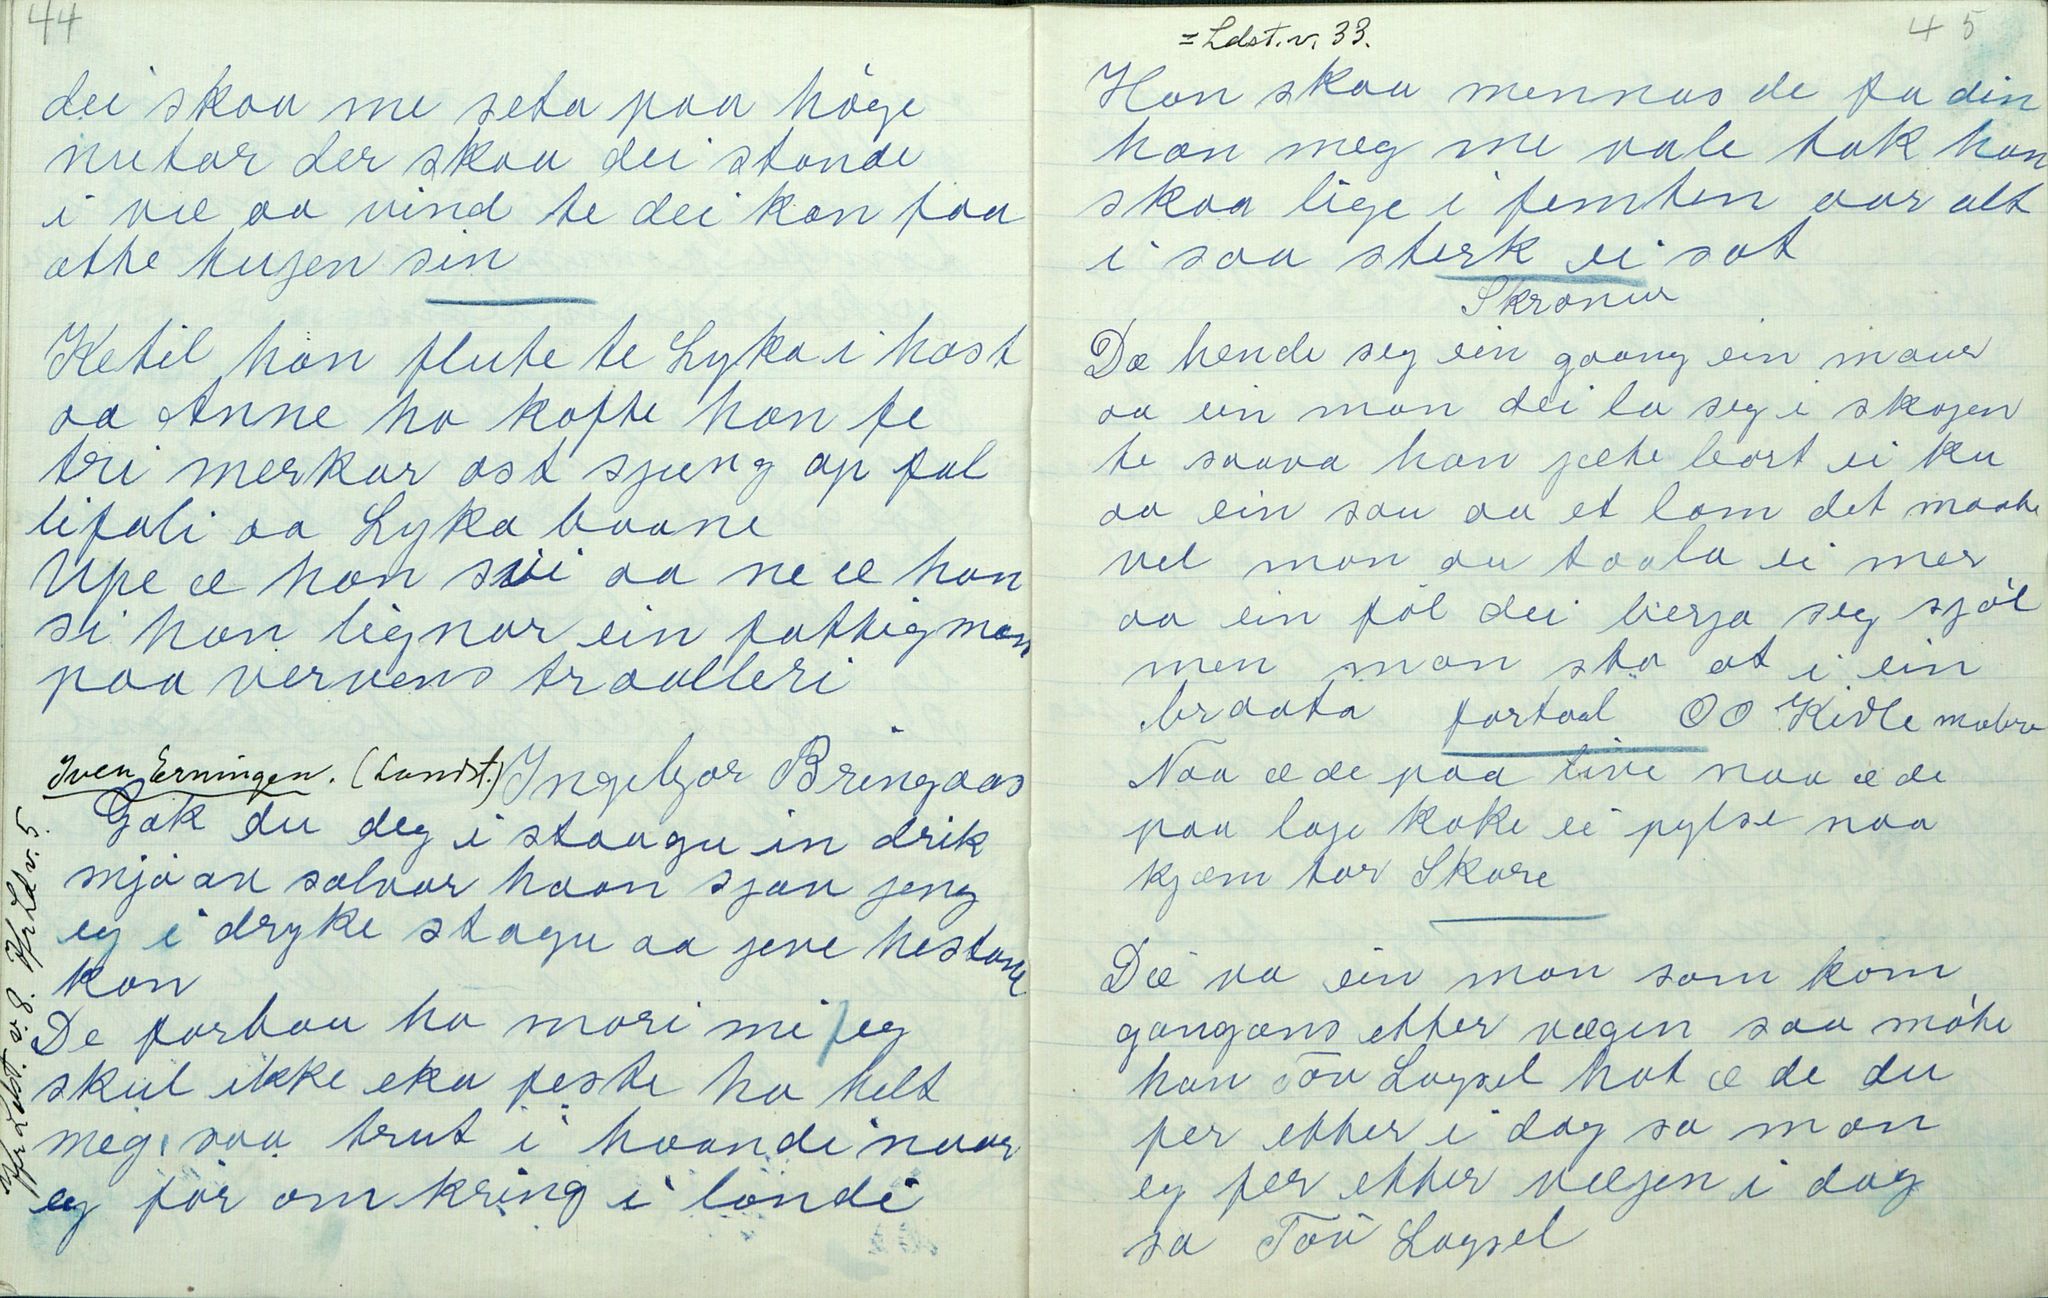 44
dei skaa me seta paa høge
nutar der skaa dei stande
i væ aa vind te dei kan faa
atte hugen sin
Ketil han flute te Lyka i høst
aa Anne ho kofte han fe
tri merkar ost sjung op fal
lifali aa Lyka baane
Upe æ han svi aa ne æ han
si han lignar ein fattig man
paa vervens traalleri
Iven Erningen. (Landst.) Ingebjor Bringaas
Gak du deg i staagu in drik
mjø au salvar haan sjau jeng
eg i dryke stogu aa jeve hestane
kon
De forbau ho mori mi eg
skul ikke eka feste ho helt
meg, saa trut i haandi naar
eg før om kring i londi
Jfr. Ldst. v. 8. Jfr. Ld v. 5.
45
= Ldst. v. 33.
Han skaa mennas de fa din
han meg me vale tak han
skaa lige i femten aar alt
i saa sterk ei sot
Skrønur
Dæ hende seg ein gaang ein maur
aa ein man dei la seg i skogen
te saava han jette bort ei ku
aa ein sau aa et lam det maatte
vel man au taala ei mer
aa ein føl dei berja seg sjøl
men man sto at i ein
braata fortaal OO Kidle mobro
Naa æ de paa live naa æ de
paa laje koke ei pylse naa
kjæm tor Skore
Dæ va ein man som kom
gangans etter vegen saa møtte
han Tov Laysel hot æ de du
fer etter i dag sa man
eg fer etter vegjen i dag
sa Tov Laysel